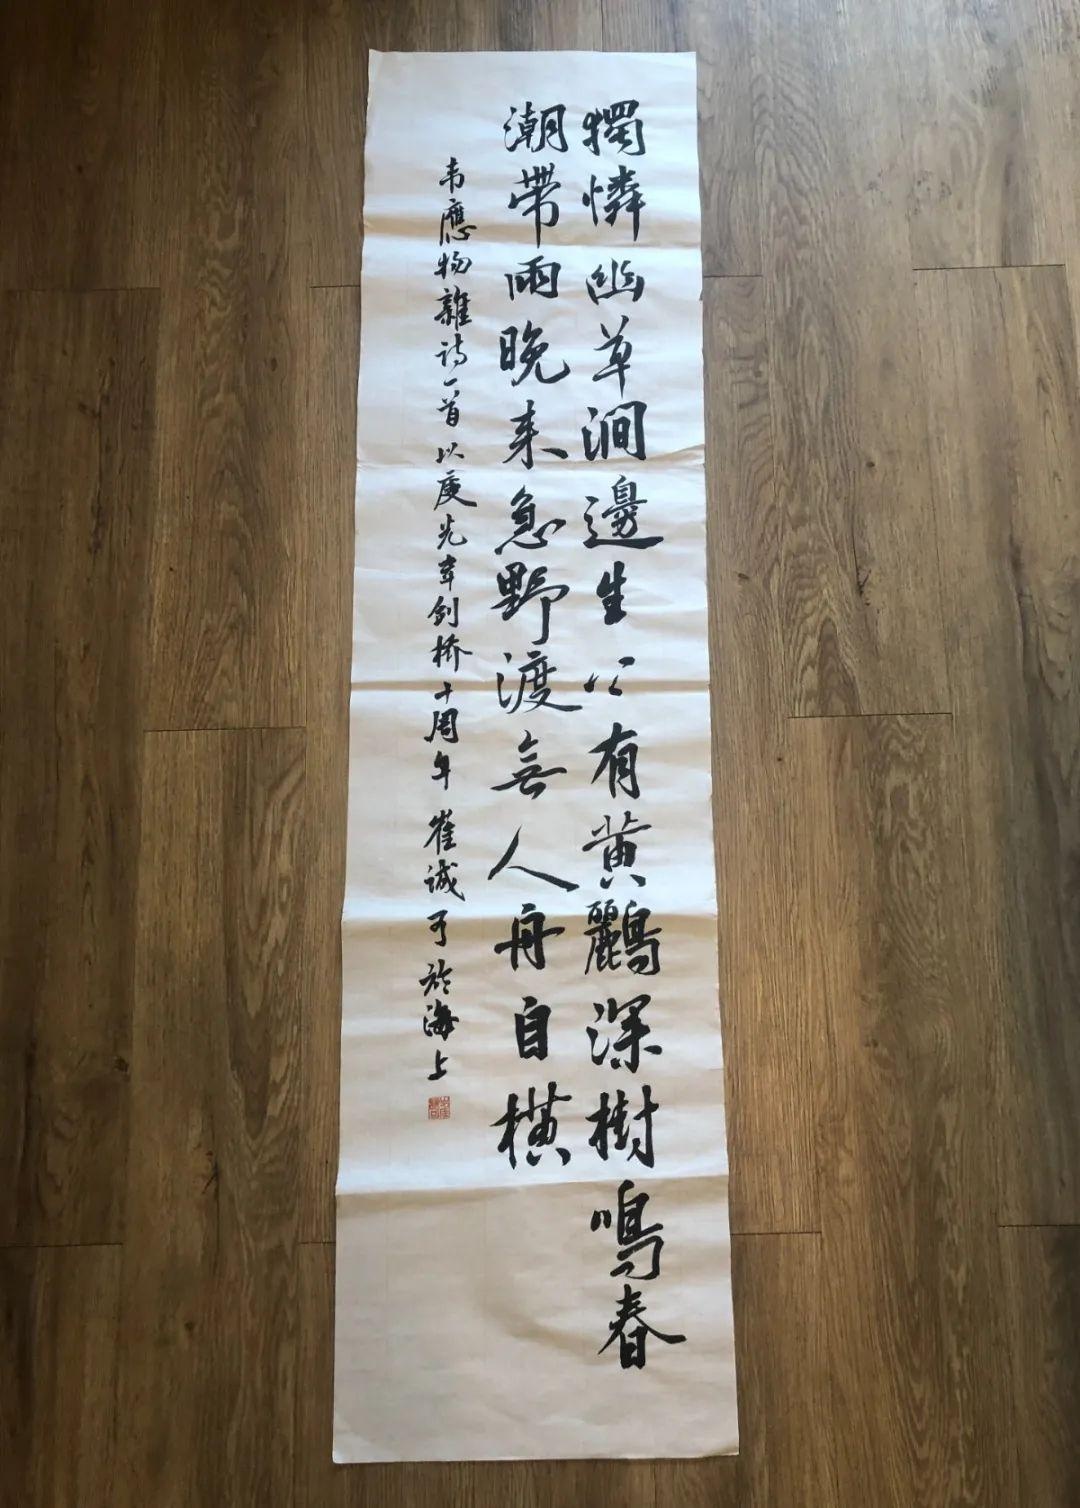 獨憐幽草澗邊生上有黃鸝深樹鳴春
潮帶雨晚来急野渡無人舟自橫
韦應物雜诗一首以慶光華剑桥十周年 崔诚可於海上